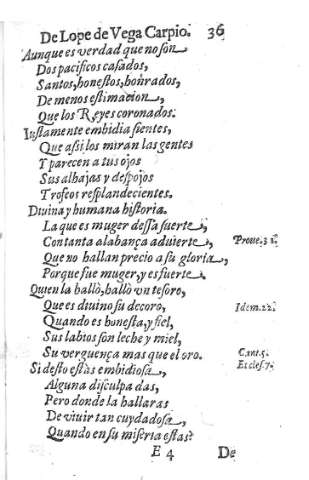 De Lope de Vega Carpio. 36
Aunque es verdad que no son
Dos pacificos casados,
Santos, honestos, hõrados,
De menos estimacion,
Que los Reyes coronados.
Iustamente embidia sientes,
Que assi los miran las gentes
Y parecen a tus ojos
Sus alhajas y despojos
Trofeos resplandecientes.
Diuina y humana historia.
La que es muger dessa suerte,
Con tanta alabança aduierte, Proue. 31.
Que no hallan precio a su gloria,
Porque fue muger, y es fuerte.
Quien la hallò, hallò vn tesoro,
Que es diuino su decoro, Idem. 22.
Quando es honesta, y fiel,
Sus labios son leche y miel,
Su verguença mas que el oro. Cant. 5.
Si desto estàs embidiosa, Eccles. 7.
Alguna disculpa das,
Pero donde la hallaras
De viuir tan cuydadosa,
Quando en su miseria estas?
E 4 De